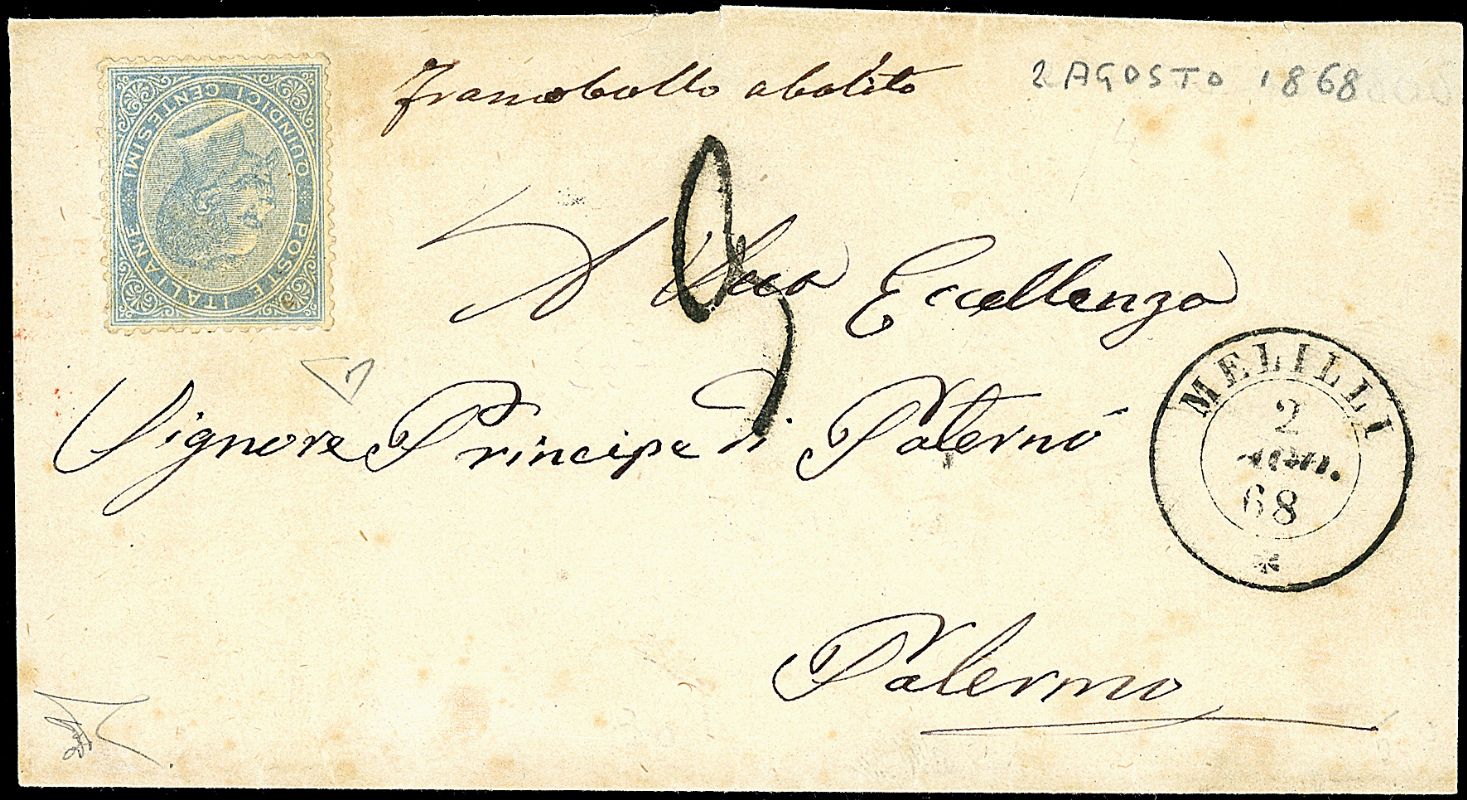 POSTE ITALIANE
QUINDICI CENTESIMI
Francobollo abolito
2 AGOSTO 1868
A Sua Eccellenza
Signore Principe di Paternó
Palermo
MELILLI
2
AGO.
68